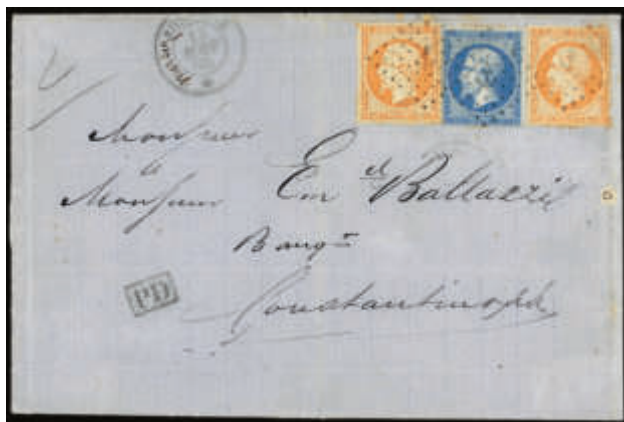 Monsieur
à
Monsieur Em.el Baltazzi
Banqr
PD
Constantinople